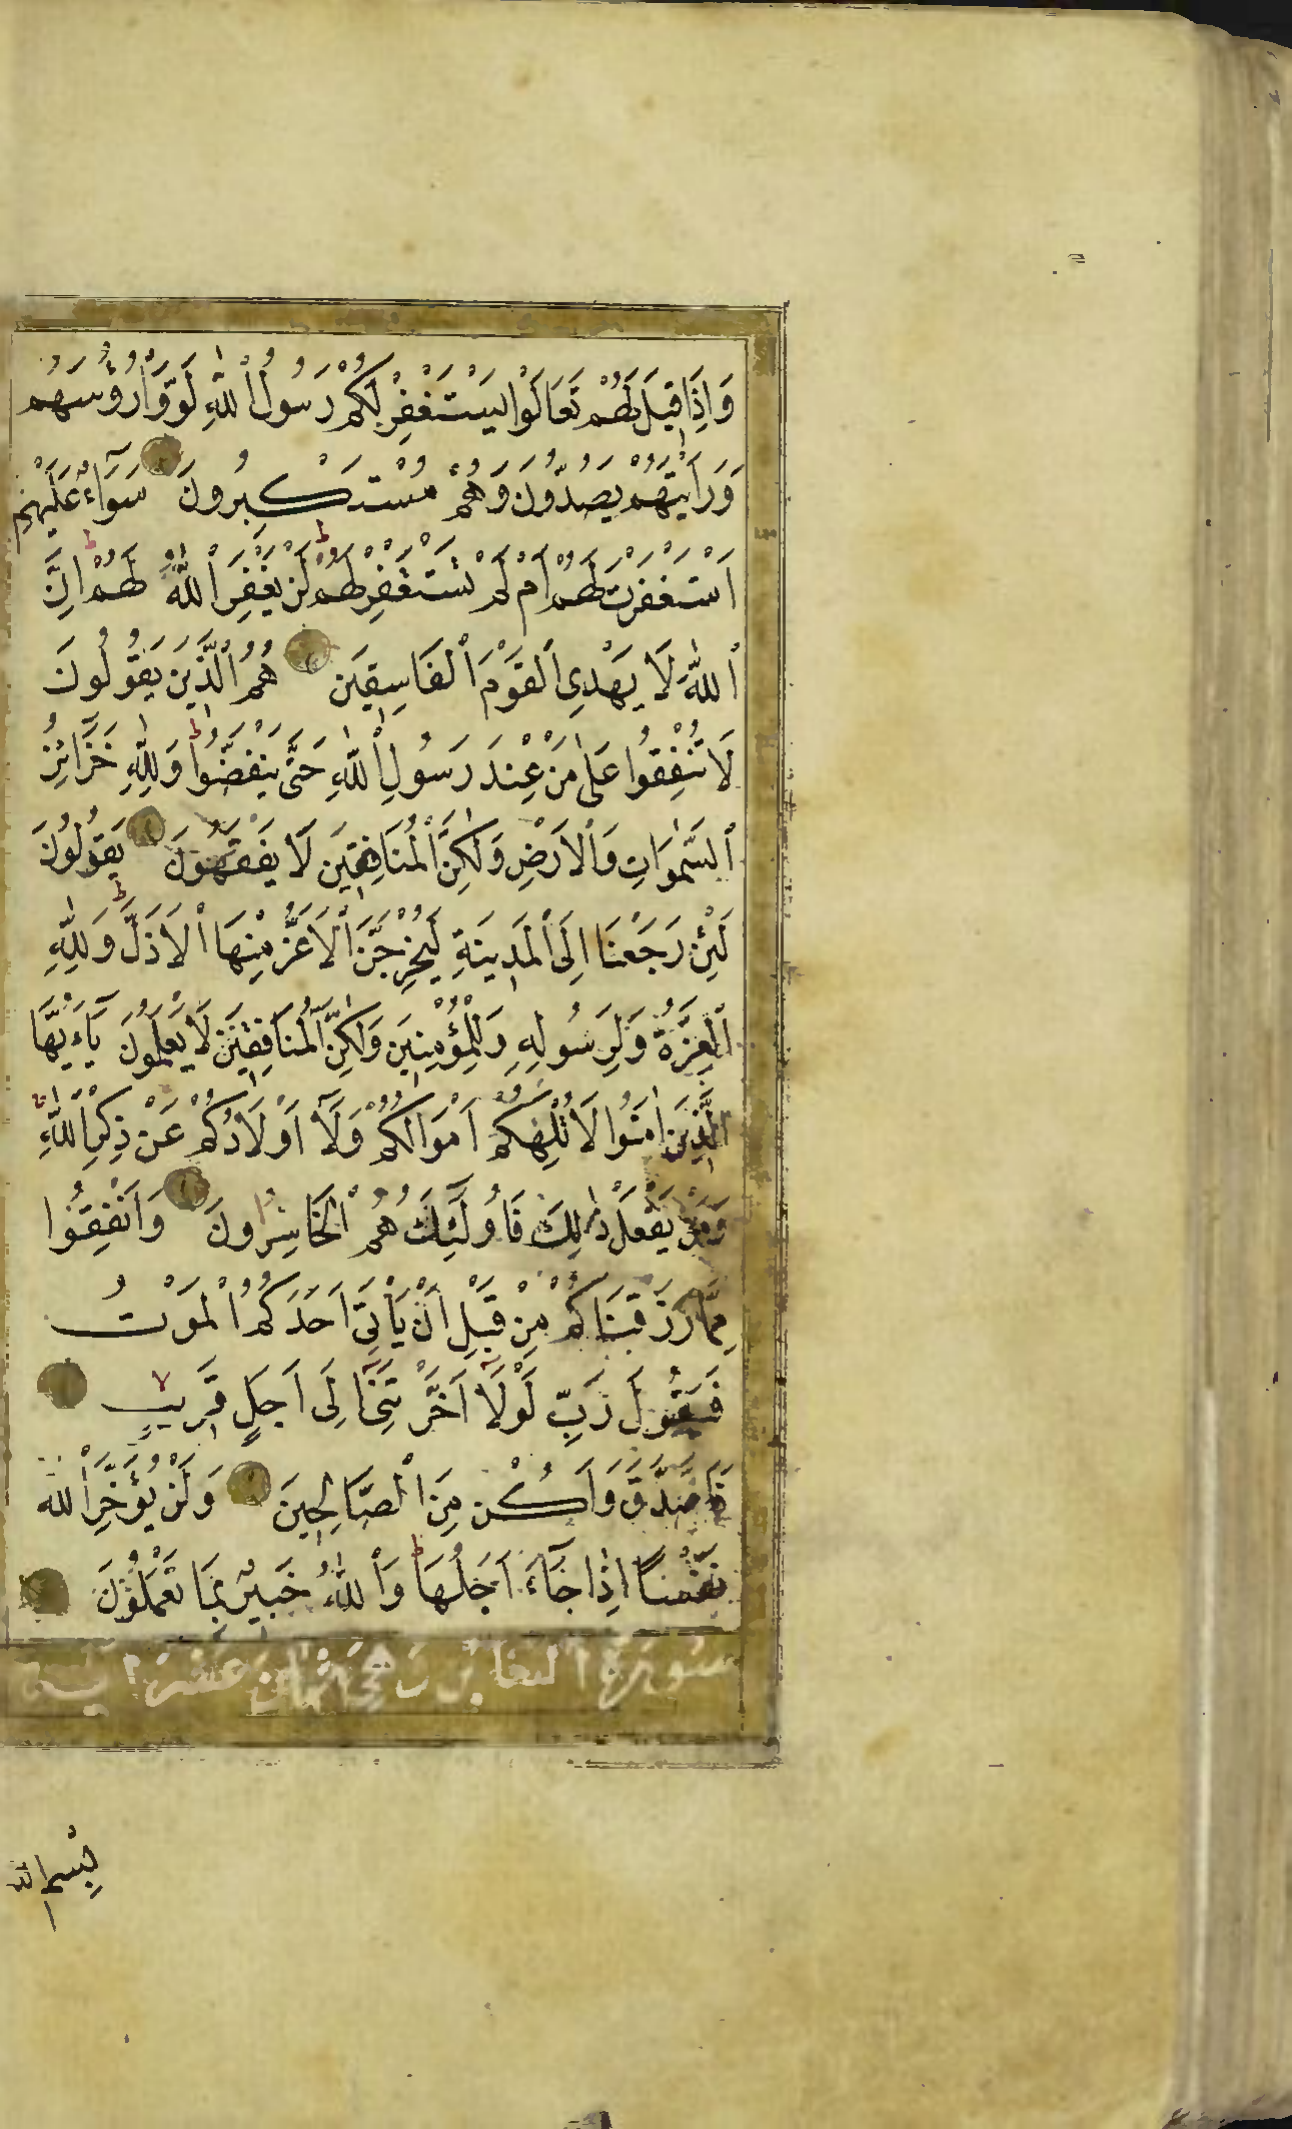 وَاِذَا قِيلَ لَهُمْ تَعَالَوْا يَسْتَغْفِرْ لَكُمْ رَسُولُ اللّٰهِ لَوَّوْا رُؤُسَهُمْ
وَرَاَيْتَهُمْ يَصُدُّونَ وَهُمْ مُسْتَكْبِرُونَ سَوَآءٌ عَلَيْهِمْ
اَسْتَغْفَرْتَ لَهُمْ اَمْ لَمْ تَسْتَغْفِرْ لَهُمْ ط لَنْ يَغْفِرَ اللّٰهُ لَهُمْ ط اِنَّ
اللّٰهَ لَا يَهْدِى الْقَوْمَ الْفَاسِقِينَ هُمُ الَّذِينَ يَقُولُونَ
لَا تُنْفِقُوا عَلٰى مَنْ عِنْدَ رَسُولِ اللّٰهِ حَتّٰى يَنْفَضُّوا ط وَلِلّٰهِ خَزَائِنُ
السَّمٰوَاتِ وَالْاَرْضِ وَلٰكِنَّ الْمُنَافِقِينَ لَا يَفْقَهُونَ يَقُولُونَ
لَئِنْ رَجَعْنَا اِلَى الْمَدِينَةِ لَيُخْرِجَنَّ الْاَعَزُّ مِنْهَا الْاَذَلَّ ط وَلِلّٰهِ
الْعِزَّةُ وَلِرَسُولِهِ وَلِلْمُؤْمِنِينَ وَلٰكِنَّ الْمُنَافِقِينَ لَا يَعْلَمُونَ يَآءَيُّهَا
الَّذِينَ اٰمَنُوا لَا تُلْهِكُمْ اَمْوَالُكُمْ وَلَآ اَوْلَادُكُمْ عَنْ ذِكْرِ اللّٰهِ
وَمَنْ يَفْعَلْ ذٰلِكَ فَاُولَٓئِكَ هُمُ الْخَاسِرُونَ وَاَنْفِقُوا
مِمَّا رَزَقْنَاكُمْ مِنْ قَبْلِ اَنْ يَاْتِىَ اَحَدَكُمُ الْمَوْتُ
فَيَقُولَ رَبِّ لَوْلَآ اَخَّرْتَنِىٓ اِلَى اَجَلٍ قَرِيبٍ
فَاَصَّدَّقَ وَاَكُنْ مِنَ الصَّالِحِينَ وَلَنْ يُؤَخِّرَ اللّٰه
نَفْسًا اِذَا جَآءَ اَجَلُهَا ط وَاللّٰهُ خَبِيرٌ بِمَا تَعْمَلُونَ
سورة التغابن وهى ثمان عشرة اية
بِسْمِ الله